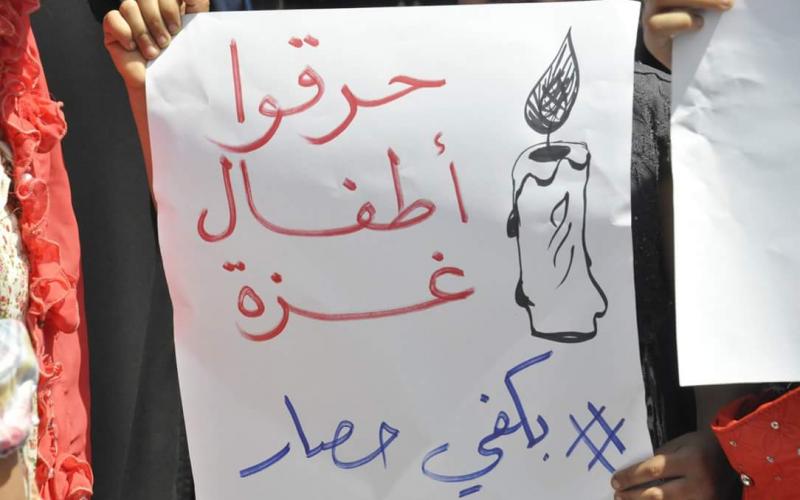 حرقوا
أطفال
غزة
#بكفي حصار